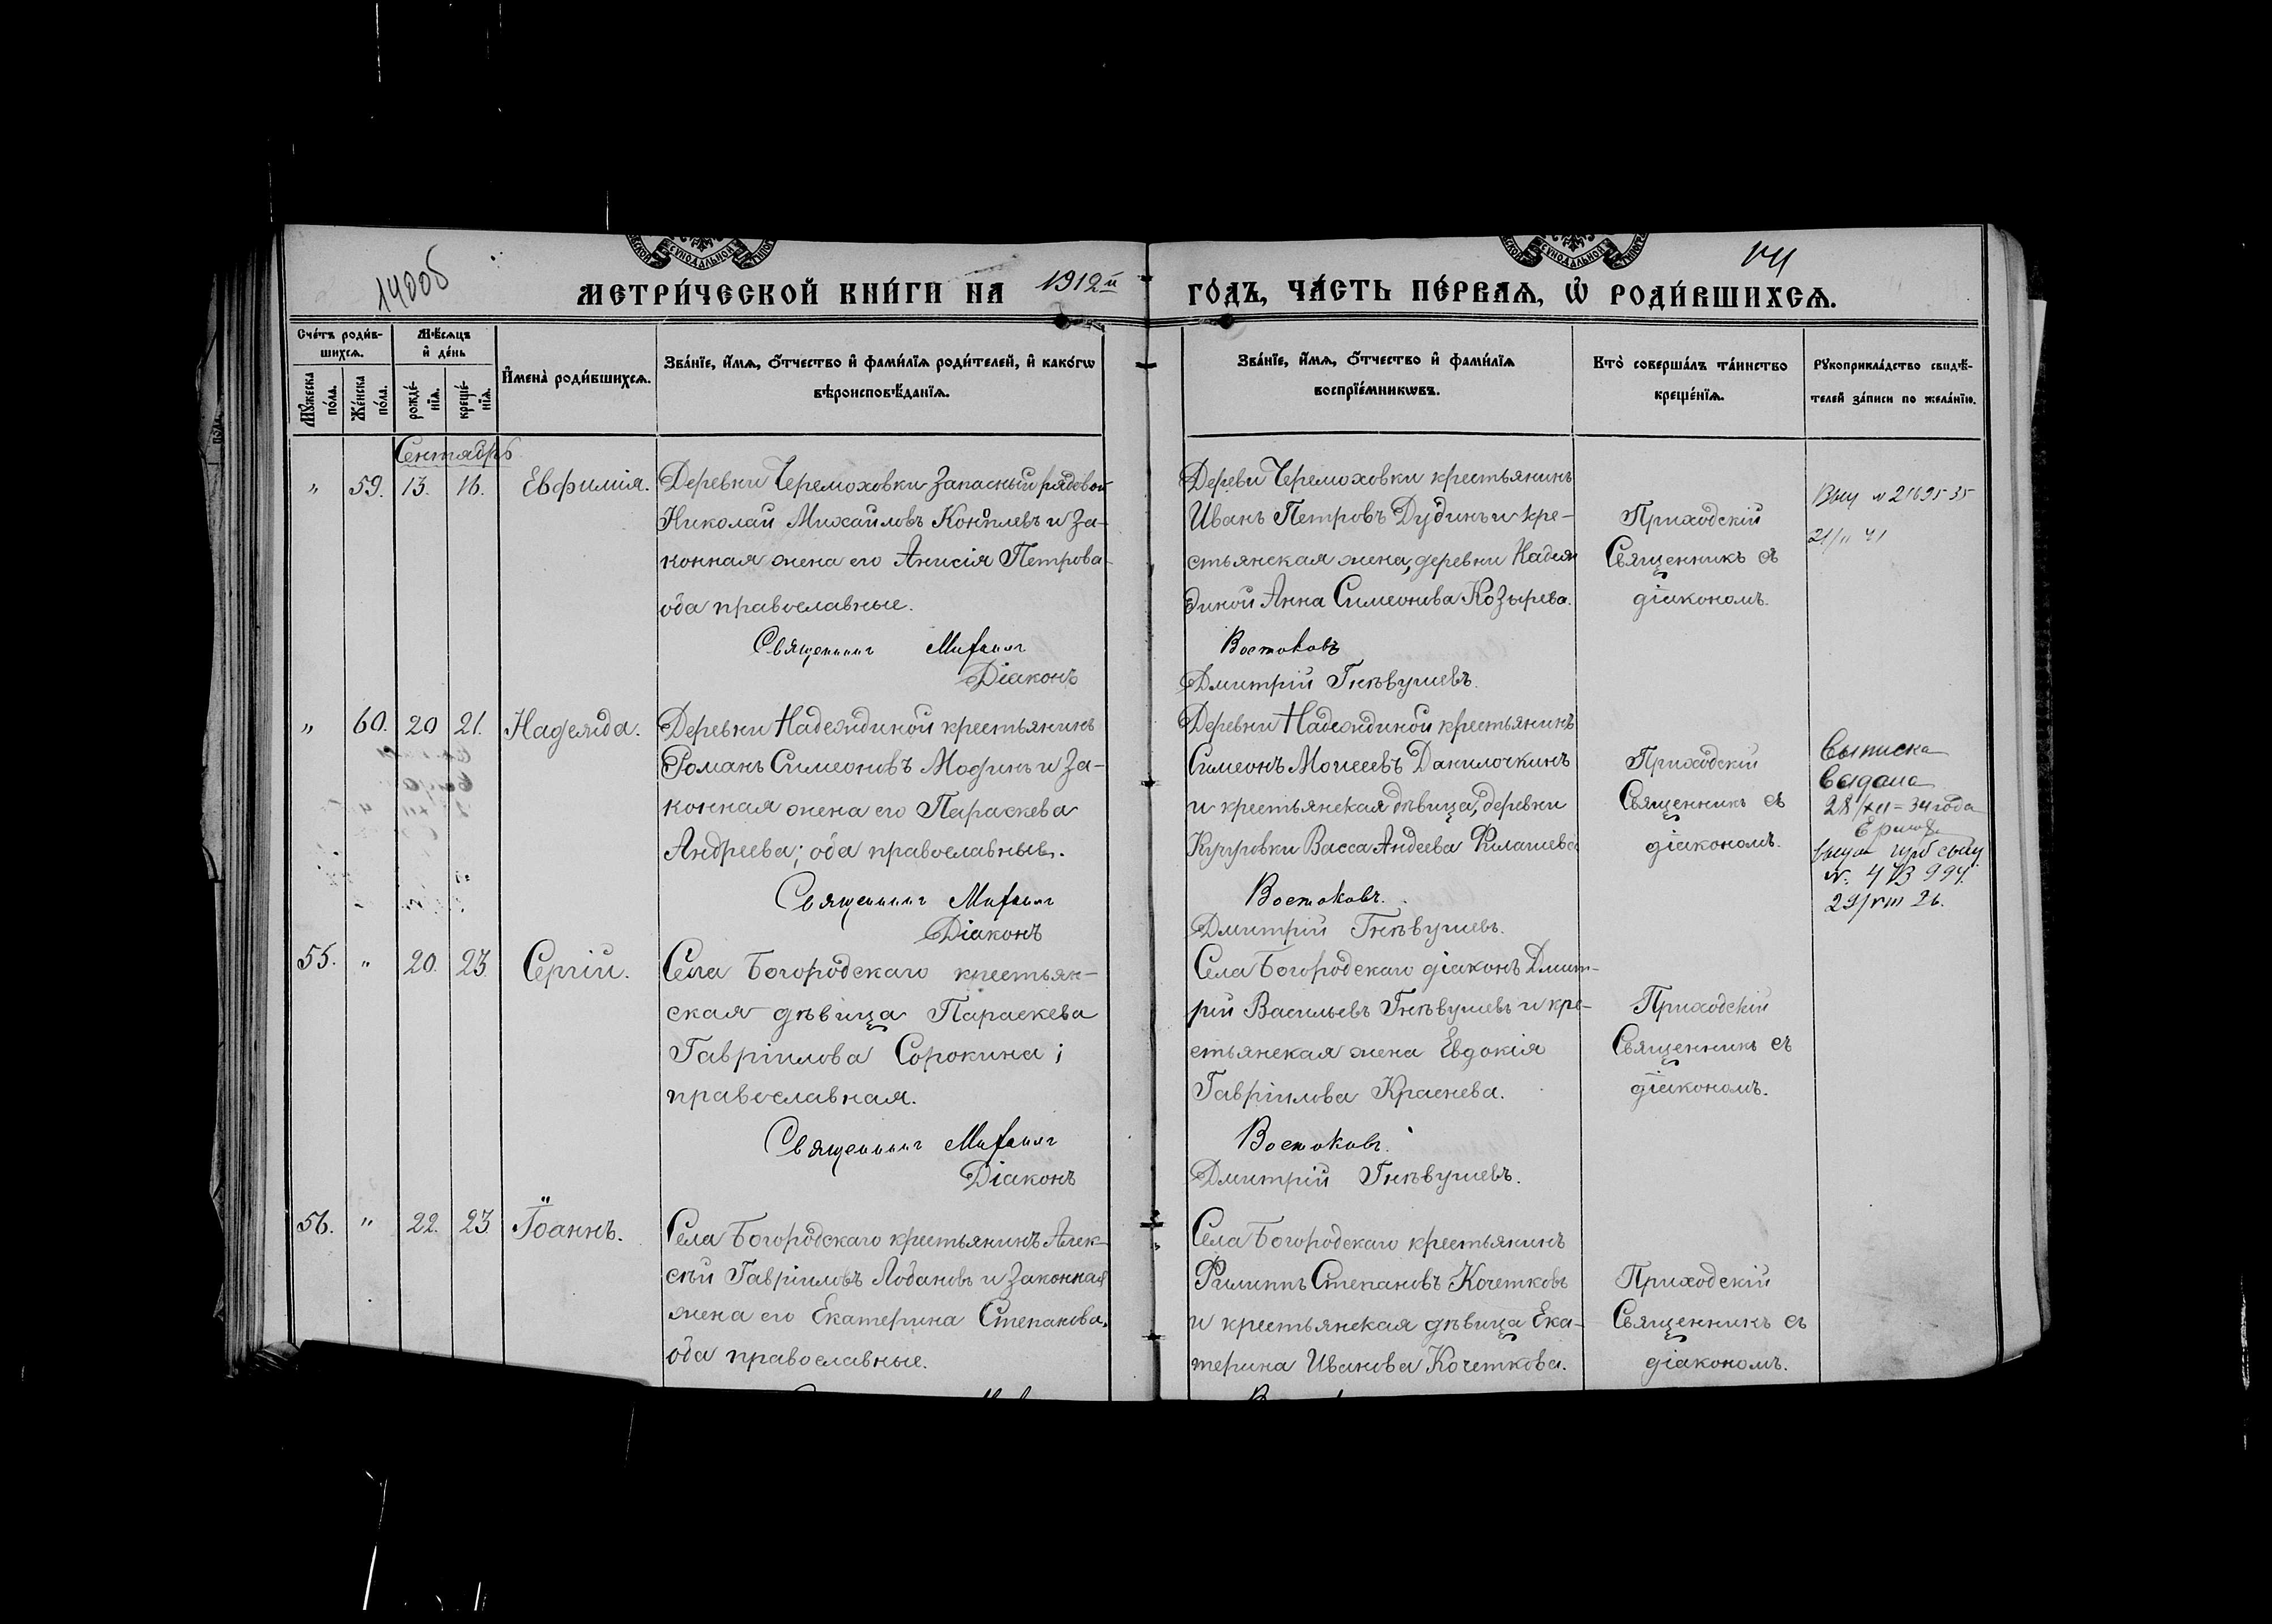 140об
141
МЕТРИ́ЧЕСКОЙ КНИ́ГИ НА 1912й ГО́ДЪ, ЧА́СТЬ ПЕ́РВАѦ, Ѡ҆ РОДИ́ВШИХСѦ.
Сче́тъ роди́вшихсѧ.
Мѣ́сѧцъ и҆ де́нь
И҆мена̀ роди́вшихсѧ.
Зва́нїе, и҆́мѧ, ѻ҆́тчество и҆ фами́лїѧ роди́телей, и҆ како́гѡ
вѣроисповѣ́данїѧ.
Зва́нїе, и҆́мѧ, ѻ҆́тчество и҆ фами́лїѧ
воспрїе́мникѡвъ.
Кто̀ соверша́лъ та́инство
креще́нїѧ.
Рꙋкоприкла́дство свидѣ́-
телей за́писи по жела́нїю.
Мꙋ́жеска по́ла.
Же́нска по́ла.
рожде́-
нїѧ.
креще́-
нїѧ.
Сентябрь
" 59. 13. 16. Евфимія.
Деревни Черемоховки запасный рядовой
Николай Михайловъ Коноплевъ и за-
конная жена его Анисія Петрова
оба православные.
Священникъ Михаилъ
Діаконъ
Деревни Черемоховки крестьянинъ
Иванъ Петровъ Дудинъ и кре-
стьянская жена, деревни Надеж
диной Анна Симеонова Козырева.
Востоковъ
Дмитрій Гнѣвушевъ.
Приходскій
Священникъ съ
діакономъ.
№ 21695-35
" 60. 20 21. Надежда.
Деревни Надеждиной крестьянинъ
Романъ Симеоновъ Модинъ и за-
конная жена его Параскева
Андреева; оба православные.
Священникъ Михаилъ
Діаконъ
Деревни Надеждиной крестьянинъ
Симеонъ Моисеевъ Данилочкинъ
и крестьянская дѣвица, деревни
Васса Андеева
Востоковъ.
Дмитрій Гнѣвушевъ.
Приходскій
Священникъ съ
діакономъ.
Выписка
выдана
28/XII=34 года
29/VIII 26.
55. " 20. 23. Сергій.
Села Богородскаго крестьян-
ская дѣвица Параскева
Гавріилова Сорокина;
православная.
Священникъ Михаилъ
Діаконъ
Села Богородскаго діаконъ Дмит-
рій Васильевъ Гнѣвушевъ и кре-
стьянская жена Евдокія
Гавріилова Краснева.
Востоковъ.
Дмитрій Гнѣвушевъ.
Приходскій
Священникъ съ
діакономъ.
56. " 22. 23. Іоаннъ.
Села Богородскаго крестьянинъ Алек-
сѣй Гавріиловъ Лобановъ и законная
жена его Екатерина Степанова,
оба православные.
Села Богородскаго крестьянинъ
Филиппъ Степановъ Кочетковъ
и крестьянская дѣвица Ека-
терина Иванова Кочеткова.
Приходскій
Священникъ съ
діакономъ.